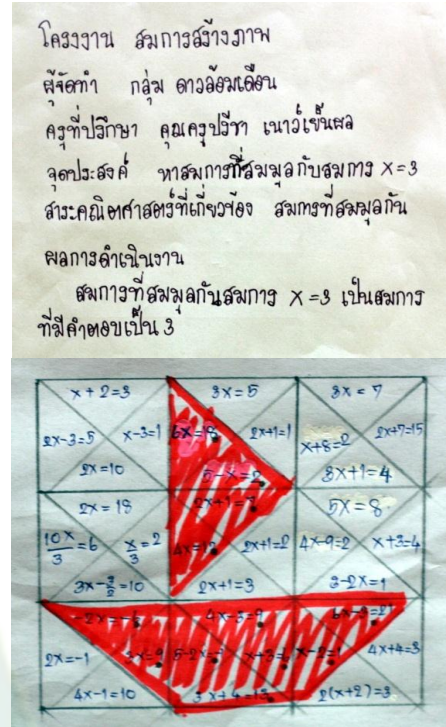 โครงงาน สมการสร้างภาพ
ผู้จัดทำ กลุ่ม ดาวล้อมเดือน
ครูที่ปรึกษา คุณครูปรีชา เนาว์เย็นผล
จุดประสงค์ หาสมการที่สมมูลกับสมการ X=3
สาระคณิตศาสตร์ที่เกี่ยวข้อง สมการที่สมมูลกัน
ผลการดำเนินงาน
สมการที่สมมูลกับสมการ X=3 เป็นสมการ
ที่มีคำตอบเป็น 3
x+2=3 3x=5 3x=7
2x-3=5 x-3=1 6x=18 2x+1=1 x+8=2 2x+7=15
2x=10 5-x=2 3x+1=4
2x=18 2x+1=7 5x=8
10x/3=6 x/3=2 4x=12 2x+1=2 4x-9=2 x+3=4
2x+1=3 3-2x=1
-2x=-6 4x-3=9
2x=-1 3x=9 x-2=1 4x+4=3
4x-1=10 2(x+2)=3